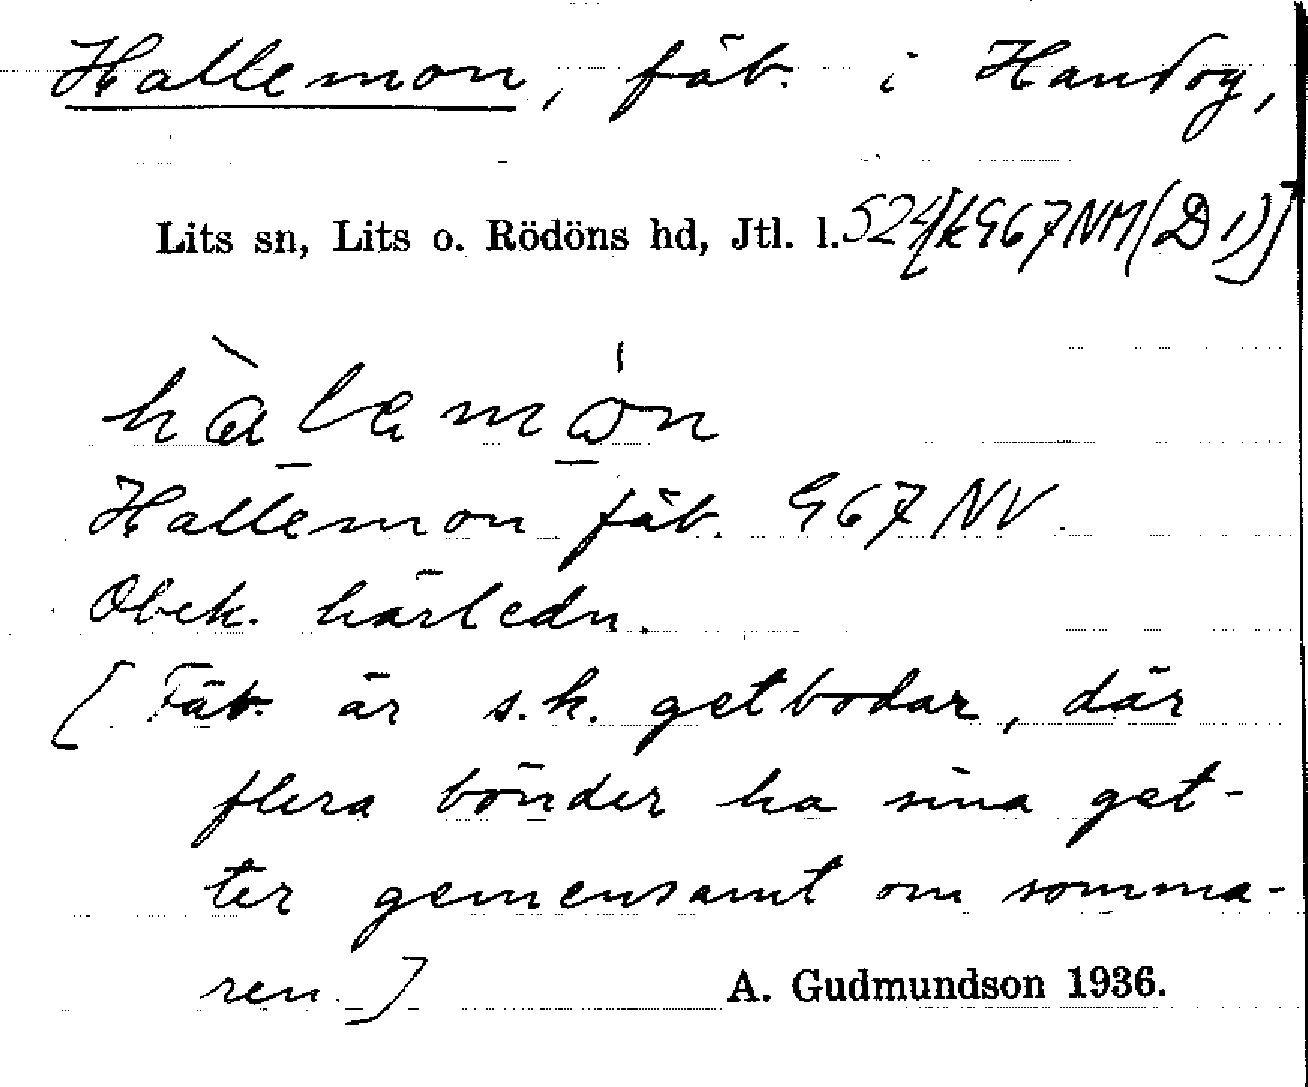 Hallemon, fäb. i Handog,
Lits sn, Lits o. Rödöns hd, Jtl. l. 524[k967NM(D1)]
Hallemon fäb. 967 NV.
Obek. härledn.
[Fäb. är s.k. getbodar, där
flera bönder ha sina get-
ter gemensamt om somma-
ren.] A. Gudmundson 1936.